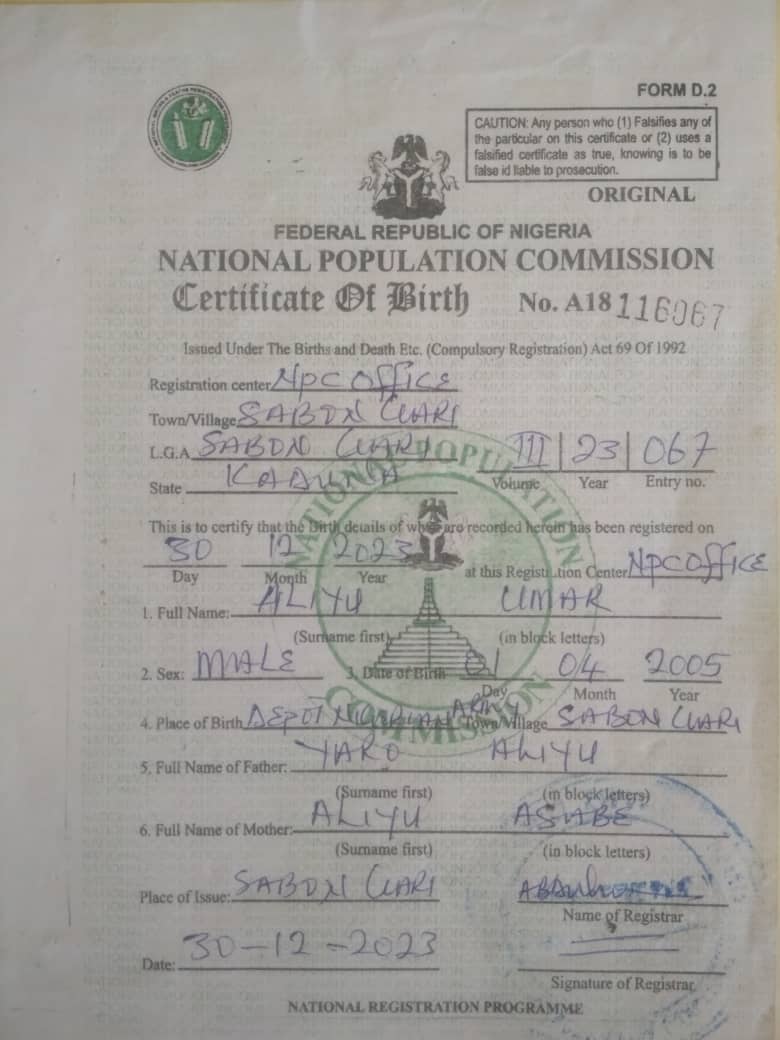 FORM D.2
CAUTION: Any person who (1) Falsifies any of
the particular on this certificate or (2) uses a
falsified certificate as true, knowing is to be
false id liable to prosecution.
ORIGINAL
FEDERAL REPUBLIC OF NIGERIA
NATIONAL POPULATION COMMISSION
Certificate Of Birth No. A18 116067
Issued Under The Births and Death Etc. (Compulsory Registration) Act 69 Of 1992
Registration center NPC OFFICE
Town/Village SABON GARI
L.G.A SABON GARI III 23 067
State KADUNA Volume Year Entry no.
This is to certify that the Birth details of who are recorded herein has been registered on
30 12 2023 at this Registration Center NPC OFFICE
Day Month Year
1. Full Name: ALIYU UMAR
(Surname first) (in block letters)
2. Sex: MALE 3. Date of Birth 01 04 2005
Day Month Year
4. Place of Birth DEPOT NIGERIAN ARMY Town/Village SABON GARI
5. Full Name of Father: YARO ALIYU
(Surname first) (in block letters)
6. Full Name of Mother: ALIYU ASABE
(Surname first) (in block letters)
Place of Issue: SABON GARI
Name of Registrar
Date: 30-12-2023
Signature of Registrar
NATIONAL REGISTRATION PROGRAMME
NATIONAL POPULATION COMMISSION